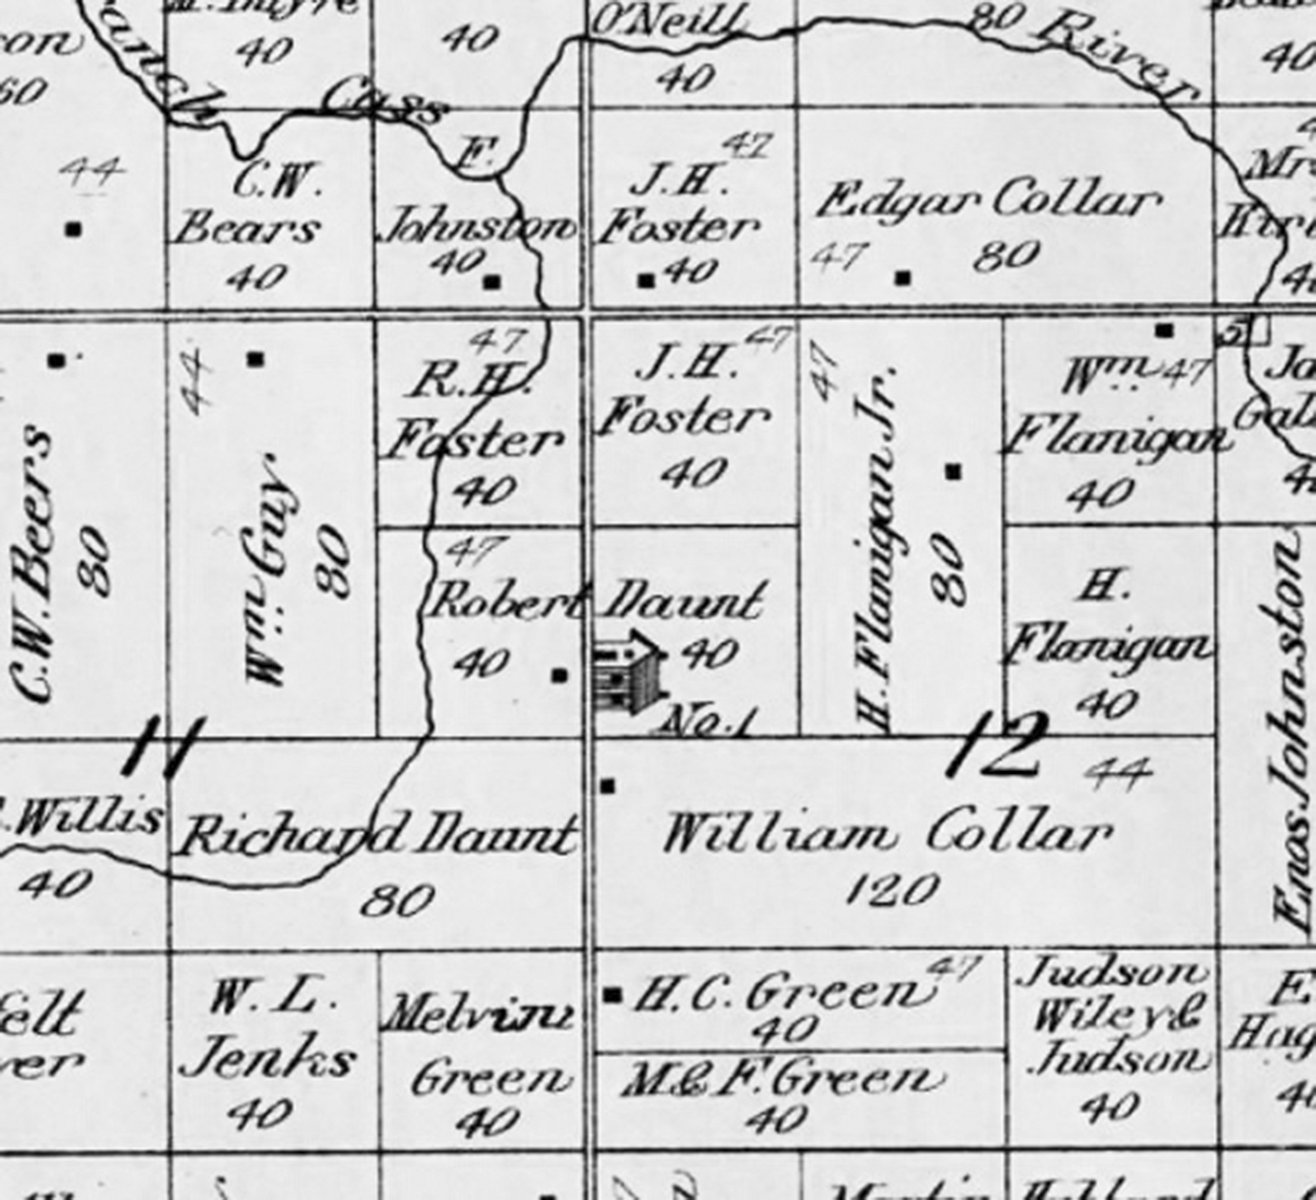 40
40
O'Neill
40
80 River
40
60
Cass
44
C.W.
Bears
40
F.
Johnston
40
47
J.H.
Foster
40
Edgar Collar
47
80
C.W. Beers
80
44
Wm. Guy
80
47
R.H.
Foster
40
J.H. 47
Foster
40
47
H. Flanigan Jr.
80
Wm. 47
Flanigan
40
5
47
Robert Daunt
40
40
No. 1
H.
Flanigan
40
Enos Johnston
11
12
44
Willis
40
Richard Daunt
80
William Collar
120
W. L.
Jenks
40
Melvin
Green
40
H.C. Green 47
40
M. & F. Green
40
Judson
Wiley &
Judson
40
E.